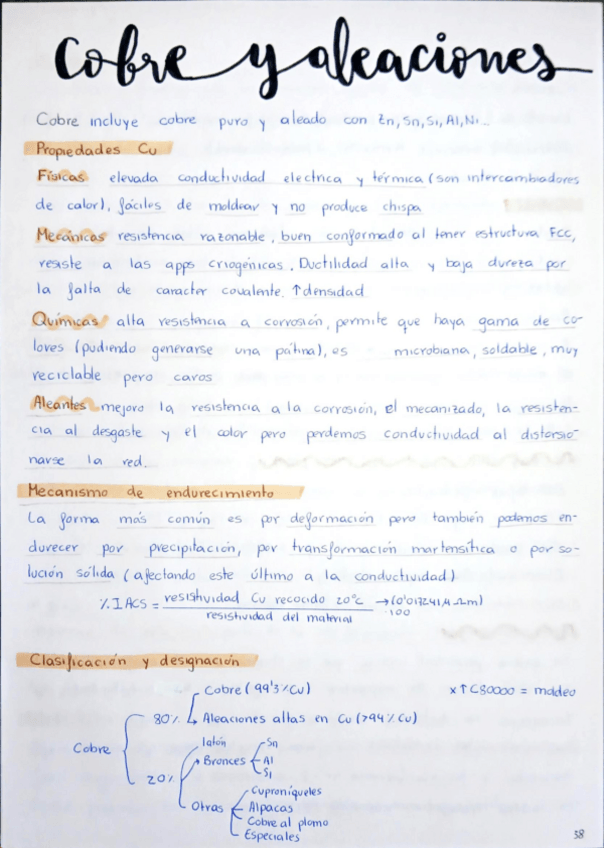 Cobre y aleaciones
Cobre incluye cobre puro y aleado con Zn, Sn, Si, Al, Ni...
Propiedades Cu
Físicas elevada conductividad electrica y térmica (son intercambiadores
de calor), fáciles de moldear y no produce chispa
Mecánicas resistencia razonable, buen conformado al tener estructura Fcc,
resiste a las apps criogénicas. Ductilidad alta y baja dureza por
la falta de caracter covalente. ↑densidad
Químicas alta resistencia a corrosión, permite que haya gama de co-
lores (pudiendo generarse una pátina), es microbiana, soldable, muy
reciclable pero caros
Aleantes mejora la resistencia a la corrosión, el mecanizado, la resisten-
cia al desgaste y el color pero perdemos conductividad al distorsio-
narse la red...
Mecanismo de endurecimiento
La forma mas común es por deformación pero también podemos en-
durecer por precipitación, por transformación martensítica o por so-
lución sólida (afectando este último a la conductividad)
% IACS = resistividad Cu recocido 20°C → (0'017241 μΩm)
resistividad del material ·100
Clasificación y designación
Cobre (99'3% Cu) x↑C80000 = moldeo
80% Aleaciones altas en Cu (>94% Cu)
Cobre
latón Sn
Bronces Al
20% Si
Cuproníqueles
Otras Alpacas
Cobre al plomo
Especiales
38